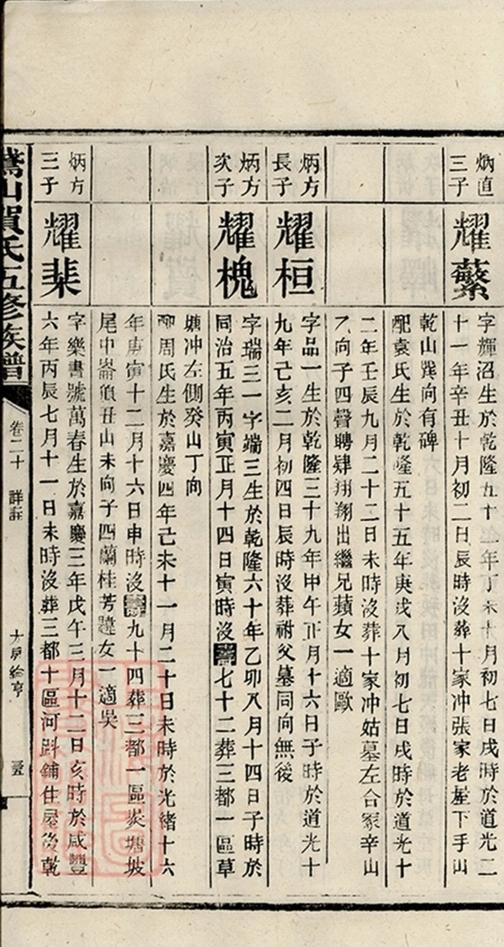 炳直
三子
耀蘩
字輝沼生於乾隆五十二年丁未十月初七日戌時於道光二
十一年辛丑十月初二日辰時沒葬十家冲張家老屋下手山
乾山巽向有碑
配袁氏生於乾隆五十五年庚戌八月初七日戌時於道光十
二年壬辰九月二十二日未時葬十家冲姑墓左合冢辛山
乙向子四聲聘肆翔翔出繼兄蘋女一適歐
炳方
長子
耀桓
字品一生於乾隆三十九年甲午正月十六日子時於道光十
九年己亥二月初四日辰時沒葬祔父墓同向無後
炳方
次子
耀槐
字瑞三一字端三生於乾隆六十年乙卯八月十四日子時於
同治五年丙寅正月十四日寅時沒壽七十二葬三都一區草
塘冲左側癸山丁向
周氏生於嘉慶四年己未十一月二十日未時於光緒十六
年庚寅十二月十六日申時沒壽九十四葬三都一區炭塘坡
尾中崙領丑山未向子四蘭桂芳女一適吳
炳方
三子
耀棐
字樂書號萬春生於嘉慶三年戊午三月十二日亥時於咸豐
六年丙辰七月十一日未時沒葬三都十區河鋪住屋後乾
山賀氏五修族譜
卷二十
詳註